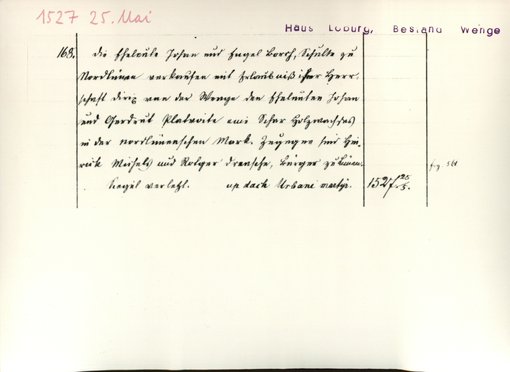 1527 25. Mai
Haus Loburg, Bestand Wenge
163. Die Eheleute Johan und Engel Borch, Schulte zu
Nordlünen verkaufen mit Erlaubniß ihrer Herr-
schaft Dirix van der Wenge den Eheleuten Johan
und Gerdrut Platvoite eine Schar Holzwachses
in der nordlünenschen Mark. Zeugen sind Hin-
rick und Rotger Drensche, Bürger zu Lünen.
Siegel verletzt. up dach Urbani martyr. 1527 25/5.